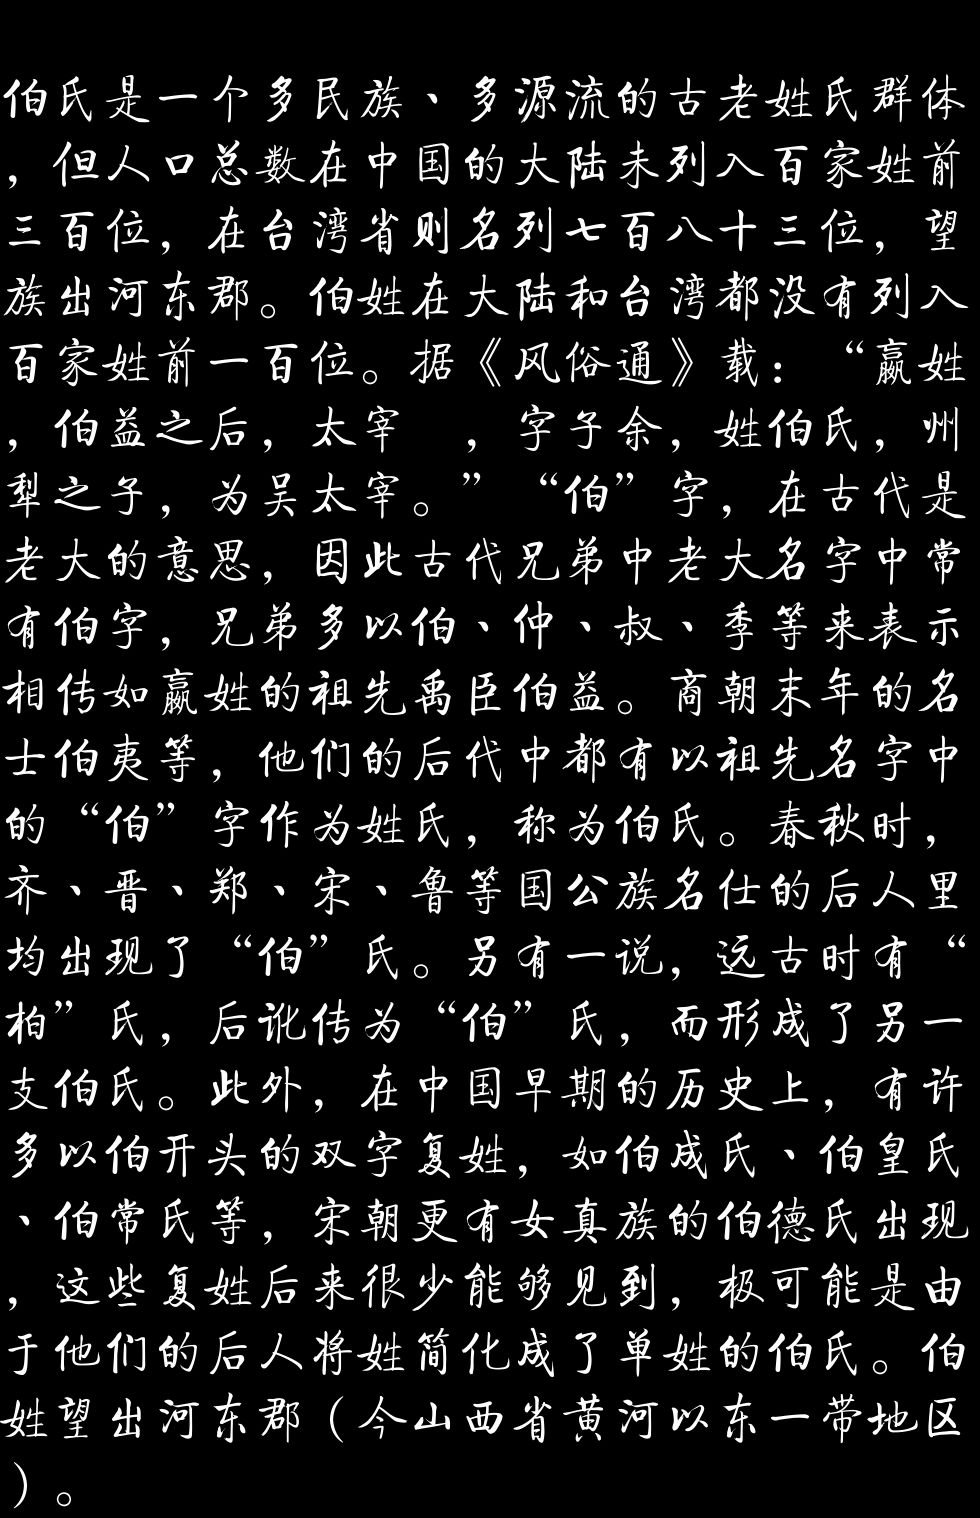 伯氏是一个多民族、多源流的古老姓氏群体
，但人口总数在中国的大陆未列入百家姓前
三百位，在台湾省则名列七百八十三位，望
族出河东郡。伯姓在大陆和台湾都没有列入
百家姓前一百位。据《风俗通》载：“嬴姓
，伯益之后，太宰 ，字子余，姓伯氏，州
犁之子，为吴太宰。”“伯”字，在古代是
老大的意思，因此古代兄弟中老大名字中常
有伯字，兄弟多以伯、仲、叔、季等来表示
相传如嬴姓的祖先禹臣伯益。商朝末年的名
士伯夷等，他们的后代中都有以祖先名字中
的“伯”字作为姓氏，称为伯氏。春秋时，
齐、晋、郑、宋、鲁等国公族名仕的后人里
均出现了“伯”氏。另有一说，远古时有“
柏”氏，后讹传为“伯”氏，而形成了另一
支伯氏。此外，在中国早期的历史上，有许
多以伯开头的双字复姓，如伯成氏、伯皇氏
、伯常氏等，宋朝更有女真族的伯德氏出现
，这些复姓后来很少能够见到，极可能是由
于他们的后人将姓简化成了单姓的伯氏。伯
姓望出河东郡（今山西省黄河以东一带地区
）。